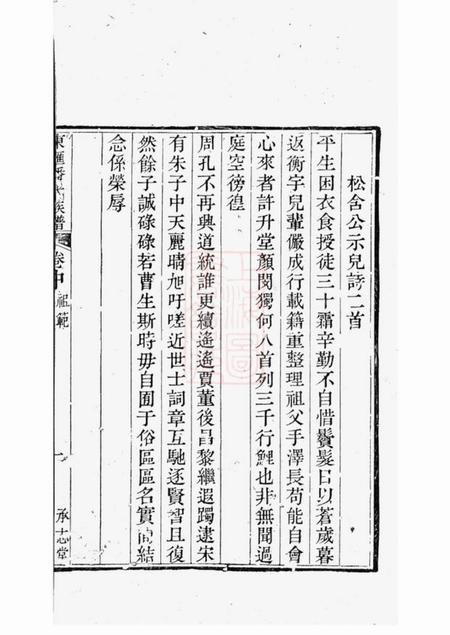 松舍公示兒詩二首
平生困衣食授徒三十霜辛勤不自惜鬢髮日以蒼歲暮
返衡宇兒輩儼成行載籍重整理祖父手澤長苟能自會
心來者許升堂顏閔獨何人首列三千行鯉也非無聞過
庭空徬徨
周孔不再興道統誰更續遙遙賈董後昌黎繼遐躅逮宋
有朱子中天麗晴旭吁嗟近世士詞章互馳逐賢智且復
然餘子誠碌碌若曹生斯時毋自囿于俗區區名實間結
念係榮辱
東匯潘氏族譜
卷中
祖範
一
承志堂